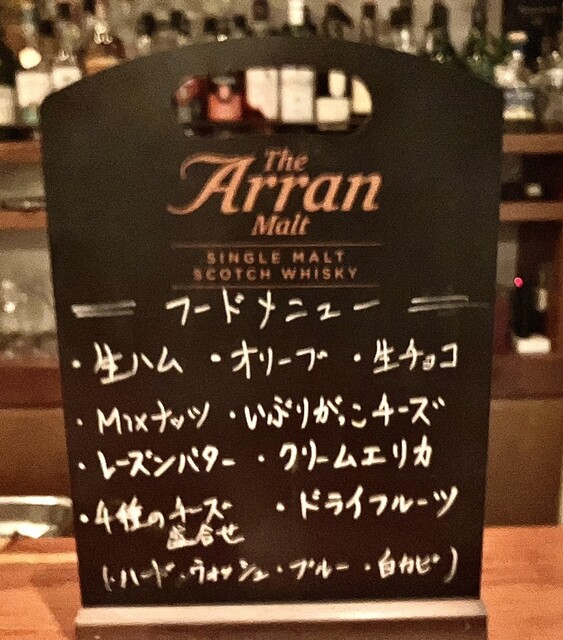 The
Arran
Malt
SINGLE MALT
SCOTCH WHISKY
フードメニュー
・生ハム ・オリーブ ・生チョコ
・Mixナッツ ・いぶりがっこチーズ
・レーズンバター ・クリームエリカ
・4種のチーズ ・ドライフルーツ
盛合せ
(・ハード・ウォッシュ・ブルー・白カビ)